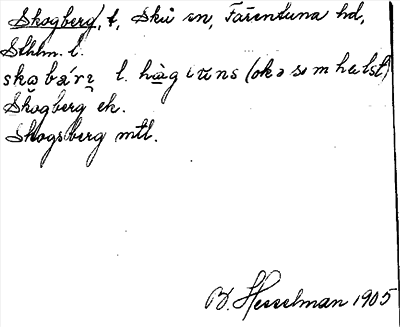 Skogberg, t, Skå sn, Färentuna hd,
Sthlm. l.
skobärį l. hàg i tuns (ok ə so m hälst)
Skogberg ek.
Skogsberg mtl.
B. Hesselman 1905